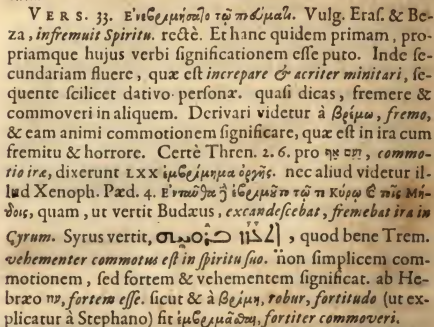 VERS. 33. Ἐνεβριμήσατο τῷ πνεύματι. Vulg. Eras. & Be-
za, infremuit Spiritu. rectè. Et hanc quidem primam, pro-
priamque hujus verbi significationem esse puto. Inde se-
cundariam fluere, quæ est increpare & acriter minitari, se-
quente scilicet dativo personæ. quasi dicas, fremere &
commoveri in aliquem. Derivari videtur à βρίμω, fremo,
& eam animi commotionem significare, quæ est in ira cum
fremitu & horrore. Certè Thren. 2. 6. pro זעם אף, commo-
tio iræ, dixerunt LXX ἐμβρίμημα ὀργῆς. nec aliud videtur il-
lud Xenoph. Pæd. 4. Ἐνταῦθα δὴ ἐβριμᾶτο τῷ τε Κύρῳ & τοῖς Μή-
δοις, quam, ut vertit Budæus, excandescebat, fremebat ira in
Cyrum. Syrus vertit, ܐܬܥܙܙ ܒܪܘܚܗ, quod bene Trem.
vehementer commotus est in spiritu suo. non simplicem com-
motionem, sed fortem & vehementem significat. ab He-
bræo עזז, fortem esse. sicut & à βρίμη, robur, fortitudo (ut ex-
plicatur à Stephano) fit ἐμβριμᾶσθαι, fortiter commoveri.